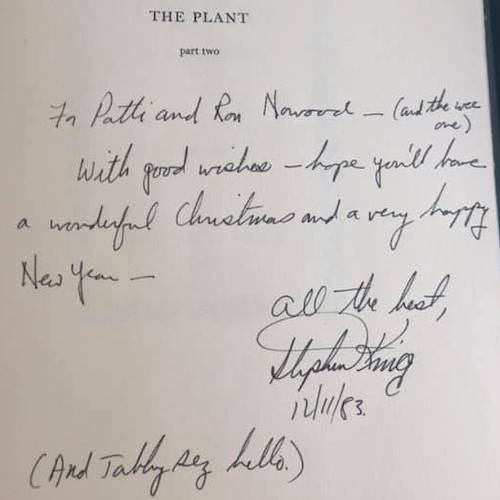 THE PLANT
part two
For Patti and Ron Norwood — (and the wee
one)
With good wishes — hope you'll have
a wonderful Christmas and a very happy
New Year —
All the best,
Stephen King
12/11/83.
(And Tabby sez hello.)